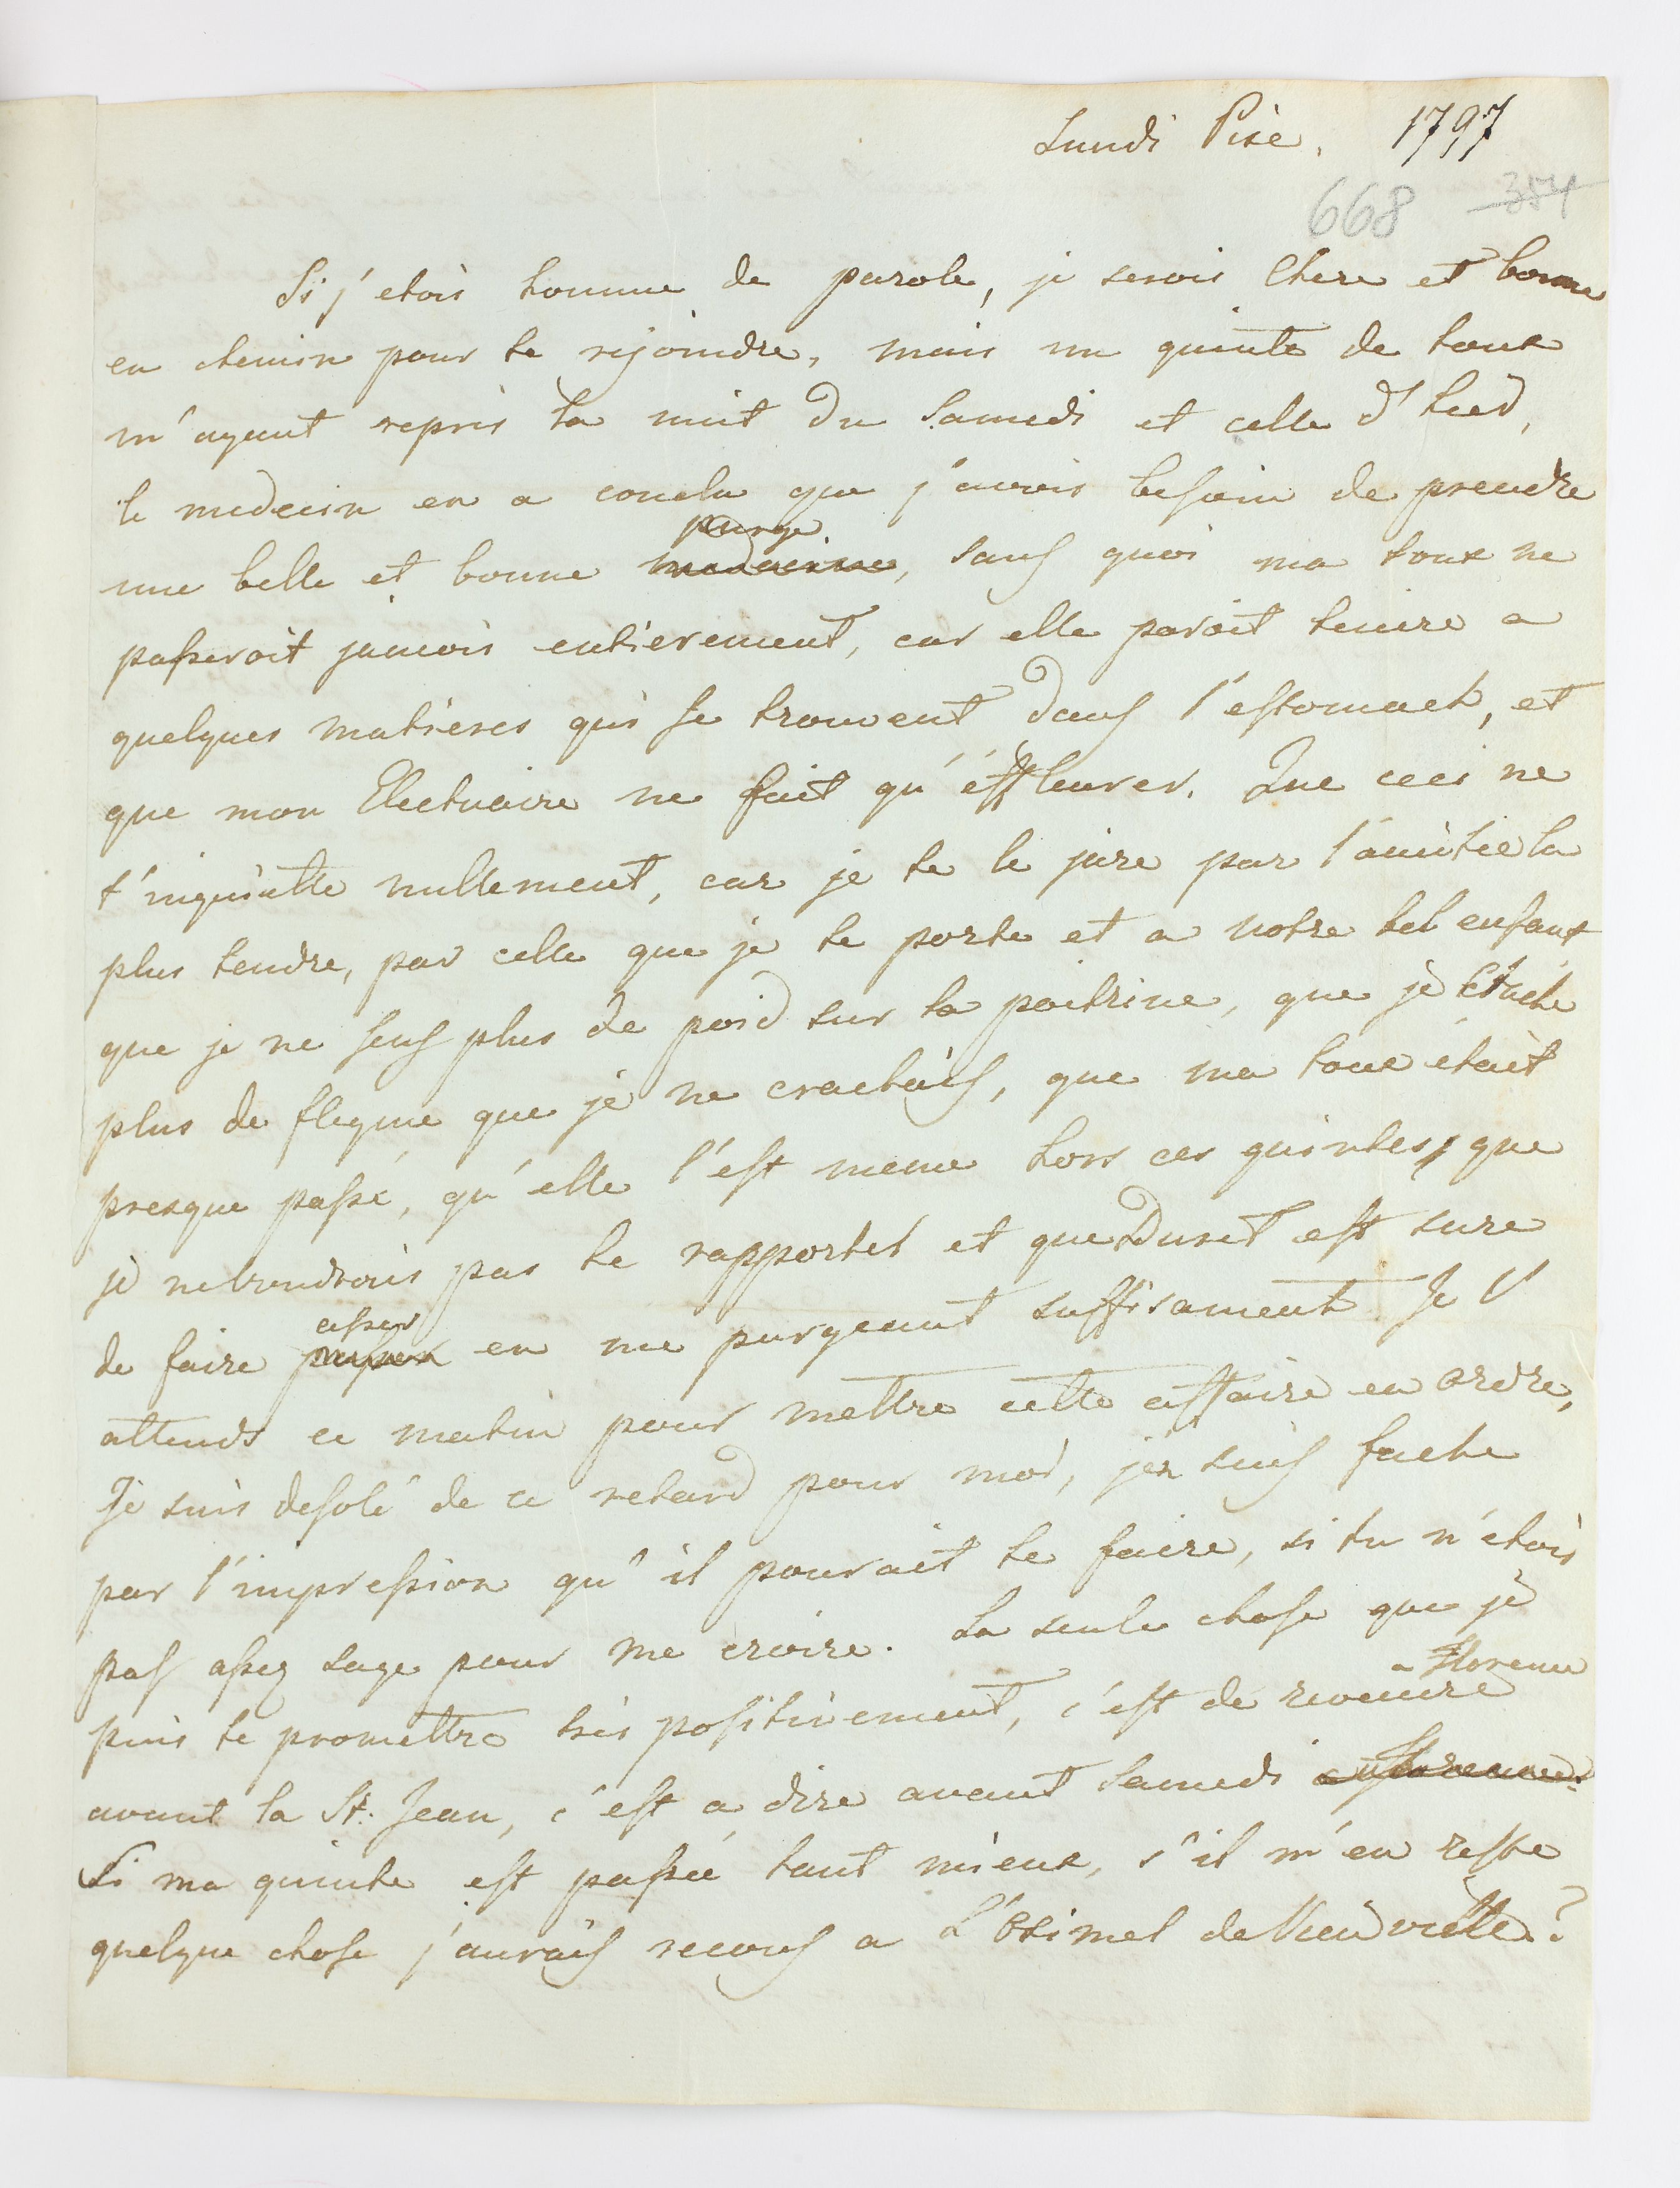 Lundi Pise. 1797
668 354
Si j'etois homme de parole, je serois Chere et bonne
en chemin pour te rejoindre, mais un quinte de toux
m'ayant repris la nuit du Samedi et celle d'hier,
le medecin en a conclu que j'avois besoin de prendre
purge
une belle et bonne medecine, sans quoi ma toux ne
passeroit jamois entierement, car elle paroit tenire a
quelques matieres qui se trouvent dans l'estomach, et
que mon Electuaire ne fait qu'éffleurer. Que ceci ne
t'inquiette nullement, car je te le jure par l'amitie la
plus tendre, par celle que je te porte et a notre bel enfant
que je ne sens plus de poid sur la poitrine, que je crache
plus de flegme que je ne crachais, que ma toux étoit
presque passé, qu'elle l'est meme hors ces quintes, que
je ne voudrois pas te rapporter et que Duret est sure
casser
de faire passer en me purgeant suffisament. Je l'
attends ce matin pour mettre cette affaire en ordre,
Je suis desolé de ce retard pour moi, j'en suis fache
par l'impression qu'il pourait te faire, si tu n'etois
pas assez sage pour me croire. La seule chose que je
a Florence
puis te promettre très positivement, c'est de revenire
avant la St. Jean, c'est a dire avant Samedi a Florence.
Si ma quinte est passée tant mieux, s'il m'en reste
quelque chose j'aurais recours a L'Oximel de